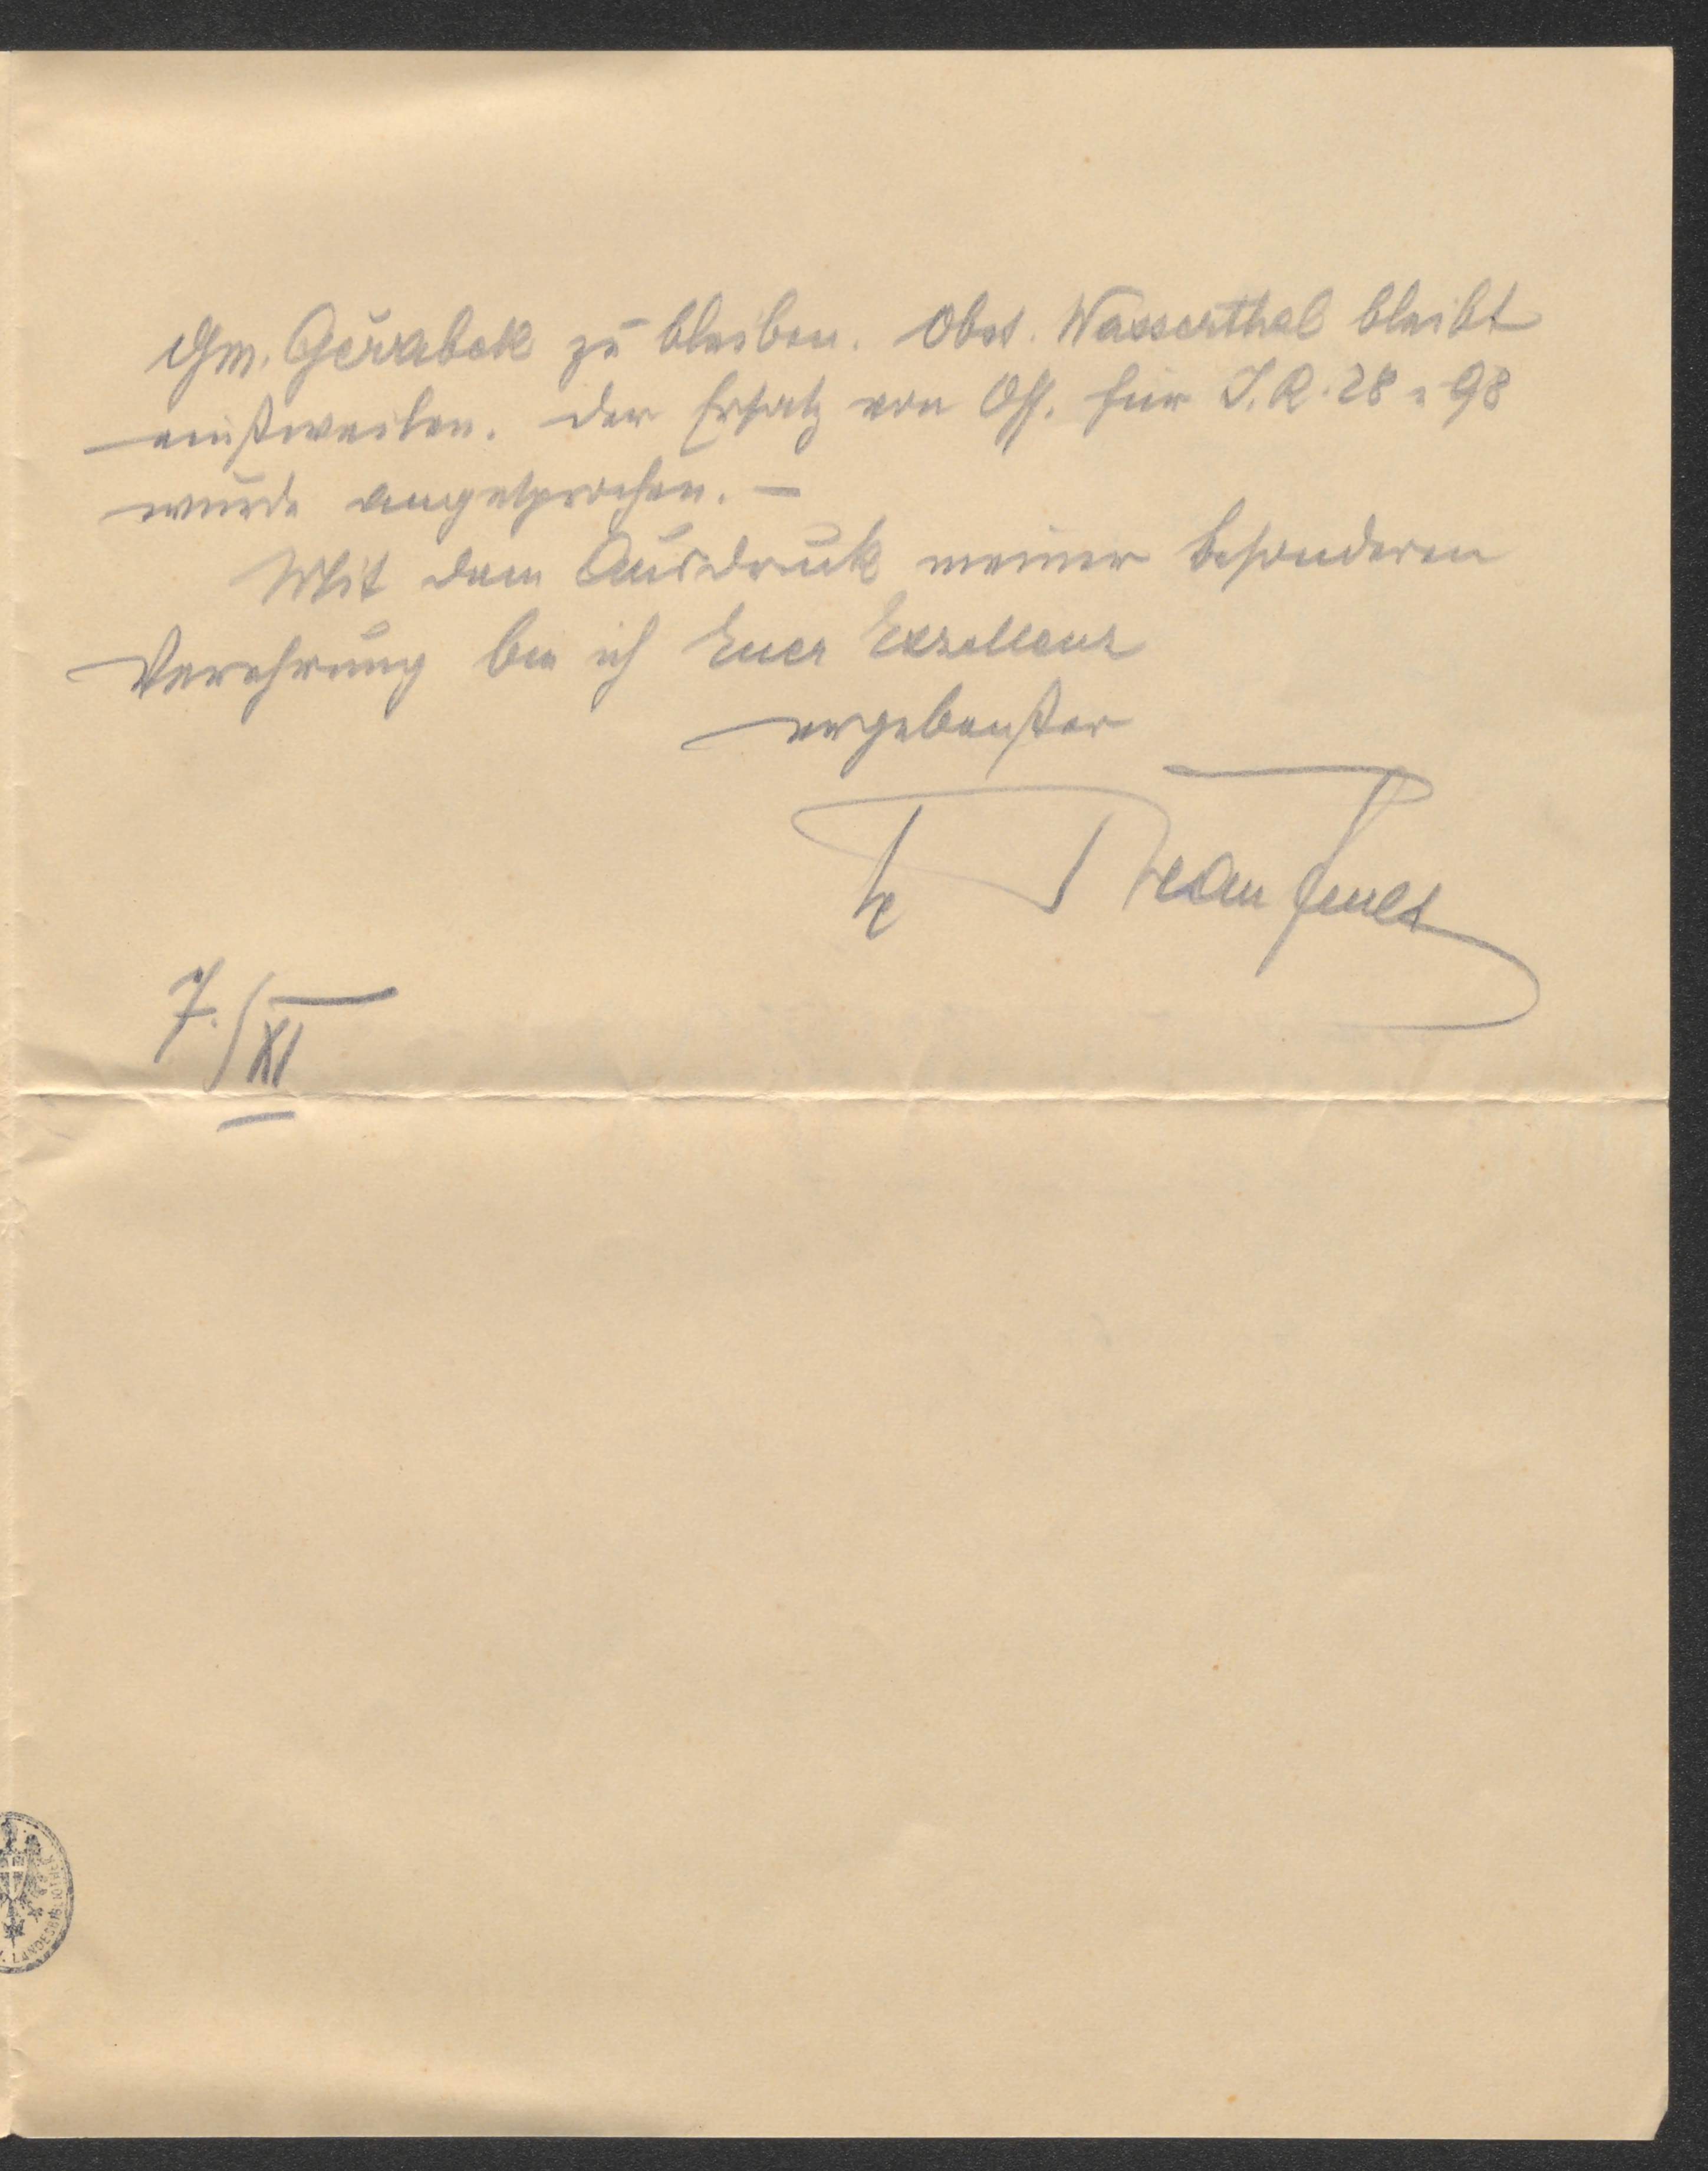 Gm. Geřabek zu bleiben. Obst. Wasserthal bleibt
einstweilen. Der Ersatz von Off. für I.R. 28 u 98
wurde angesprochen. —
Mit dem Ausdruck meiner besonderen
Verehrung bin ich Euer Exzellenz
ergebenster
7./XI
LANDESBIBLIOTHEK